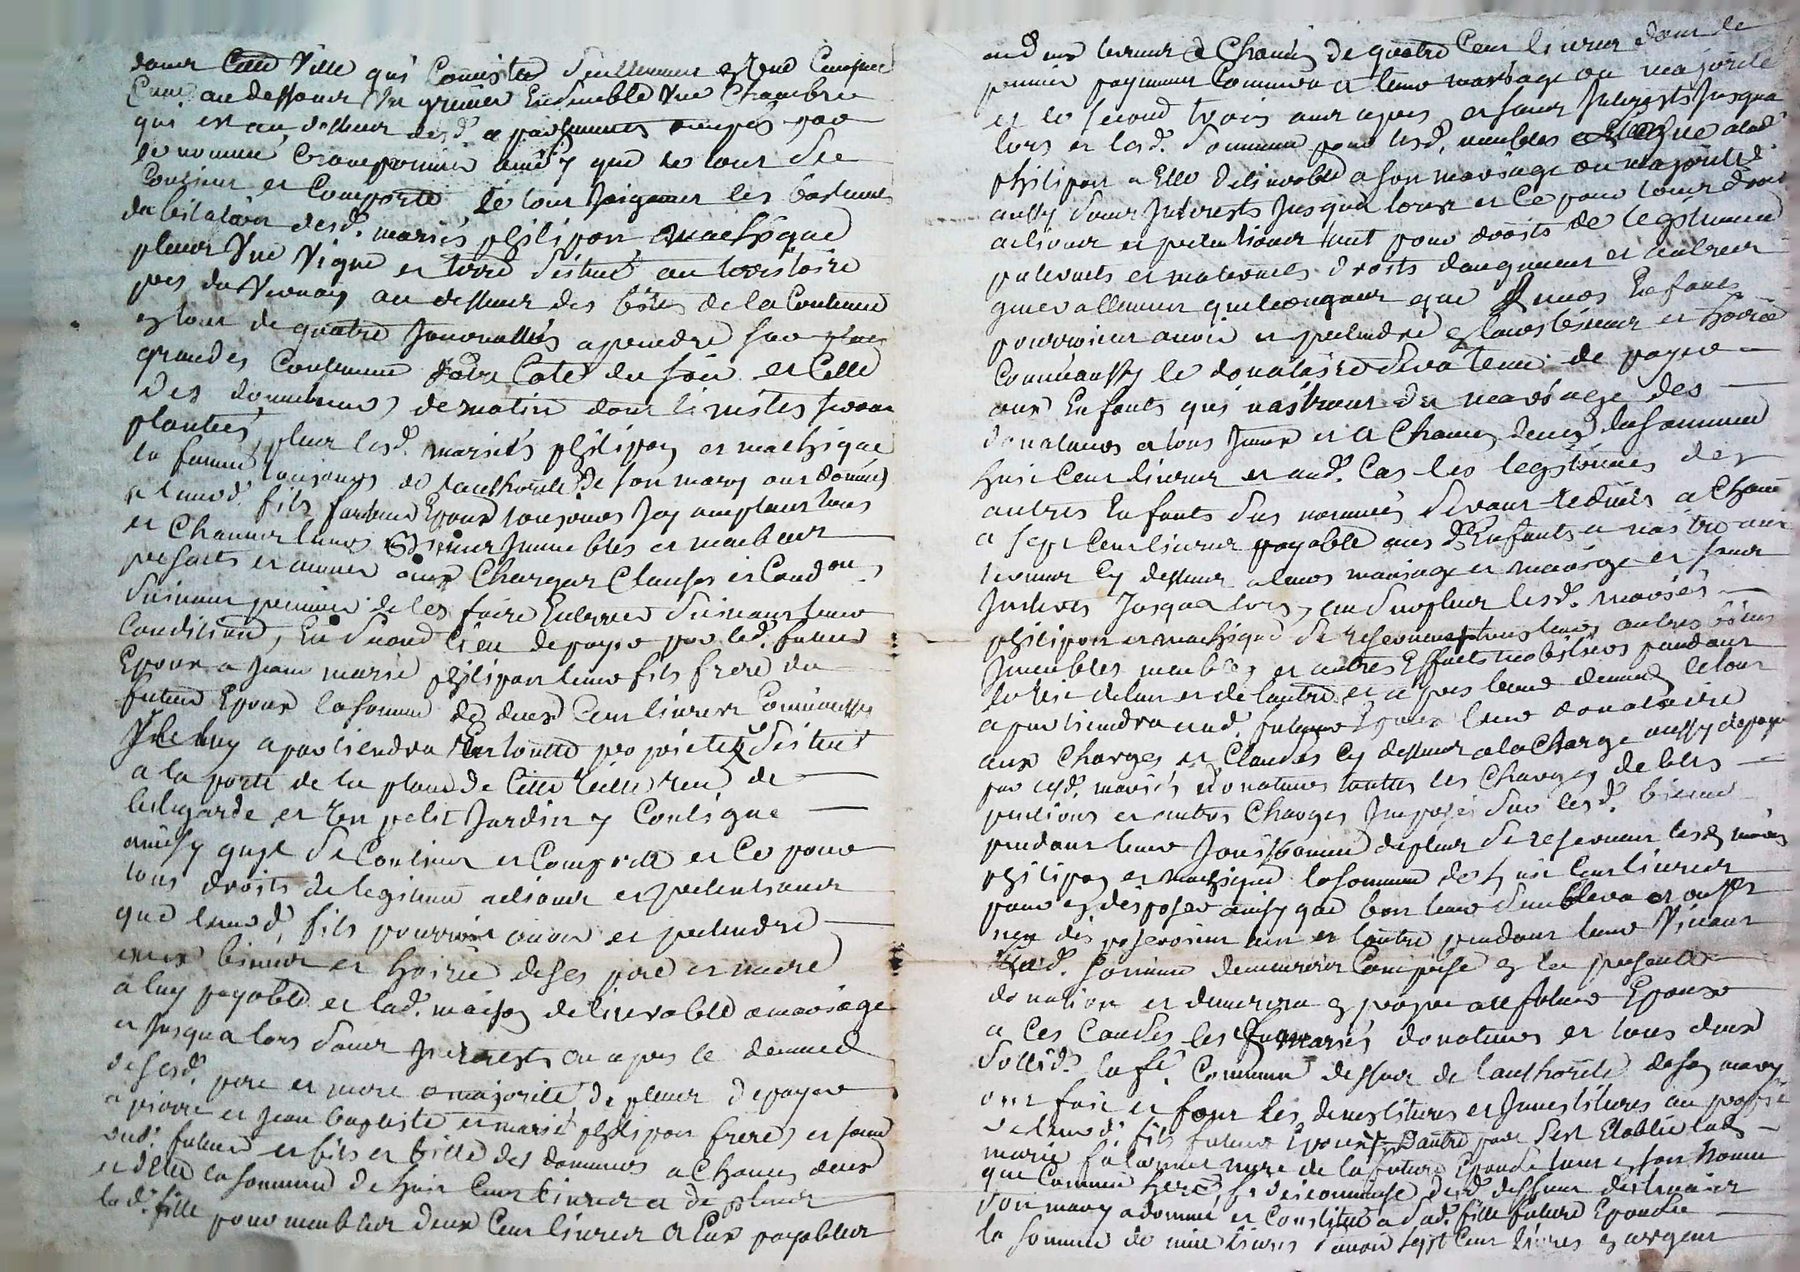 dans cette Ville qui Consiste seullement
Cave au dessous Un grenier Ensemble Une Chambre
qui est au dessus desd. apartements occupés par
le nommé ainsÿ que le tout se
Contient et Comporte le tout Joignant les bastiments
dabitation desd. mariés philipon machique
plus Une Vigne et terre sistue au territoire
pres du Vernay au dessus des de la Contenue
en tout de quatre Journallées a prendre sur plus
grandes Contenue du Coté du soir et Celle
des donateurs de matin dont limittes seront
plantées, plus lesd. mariés philipon et machique
la femme toujours de lauthorité de son mary ont donné
a leurd. fils futur Epoux toujours Joy acceptant tous
et Chacuns leurs Immeubles et meubles
presents et aux Charges Clauses et Condons
suivants premier de les faire suivant leur
Condition, En second lieu de payer par led. futur
Epoux a Jean marie philipon leur fils frere du
futur Epoux la somme de deux Cent livres Comme aussy
Il luy apartiendra En toutte proprieté sistuée
a la porte de la place de Cette Ville rue de
bellegarde et Un petit Jardin y Contigue
ainsy quil se Contient et Comporte et Ce pour
tous droits de legitime actions et pretentions
que leurd. fils pourroit avoir et pretendre
aux biens et hoirie de ses pere et mere
a luy payable et lad. maison delivrable a mariage
et Jusqua lors sans Interests ou apres le deced
desesd. pere et mere a majorité de plus de payer
a pierre et Jean baptiste et marie philipon freres et sœur
dud. futur et fils et fille des donateurs a Chacun deux
et delle la somme de huit Cent livres et de plus
lad. fille pour meubles deux Cent livres a Eux payables
aud. deux termes a Chacun de quatre Cent livres dont le
premier payement Commencera a leur mariage ou majorité
et le second trois ans apres et sans Interests Jusqua
lors et lad. somme pour lesd. meubles alad.
philipon a Elle delivrable a son mariage ou majorité
aussy sans Interests Jusqua lors et Ce pour tous droits
actions et pretentions tant pour droits de legitime
paternels et maternels droits daugment et autres
generallement quelconques que Enfants
pourroient avoir et pretendre leurs biens et hoirie
Comme aussy le donataire sera tenu de payer
aux Enfants qui naistront du mariage des
donateurs a tous Jours et a Chacun deux la somme
huit Cent livres et aud. Cas les legitimes des
autres Enfants sus nommés seront reduits a Chacun
a sept Cent livres payable aux d. Enfants a naistre aux
termes Cy dessus a leurs mariage et mariage et sans
Interest Jusqua lors, au surplus lesd. mariés
philipon et machique se reservent tous leurs autres biens
Immeubles meubles et autres Effaits mobiliers pendant
la vie delun et de lautre et apres leur deced le tout
apartiendra aud. futur Epoux leur donataire
aux Charges et Clauses Cy dessus a la Charge aussy de payer
par lesd. mariés donateurs touttes les Charges de biens
pentions et autres Charges Imposés sur lesd. biens
pendant leur Jouissance de plus se reservent lesd. mariés
philipon et machique la somme de huit Cent livres
pour en disposer ainsy que bon leur semblera et ou ils
nen disposeroient lun et lautre pendant leur Vivant
lad. somme demeurera Comprise en la presente
donation et demeurera en propre au futur Epoux
a Ces Causes les mariés donateurs et tous deux
sollid. la fe. Comme dessus de lauthorité de son mary
ont fait et font les devestitures et Investitures au profit
de leurd. fils futur Epoux dautre part sest Etablie lad.
marie mere de la future Epouse tant en son Nom
que Comme dud. deffunt
son mary a donné et Constitué a sad. fille future Epouse
la somme de mille livres savoir sept Cent livres en argent